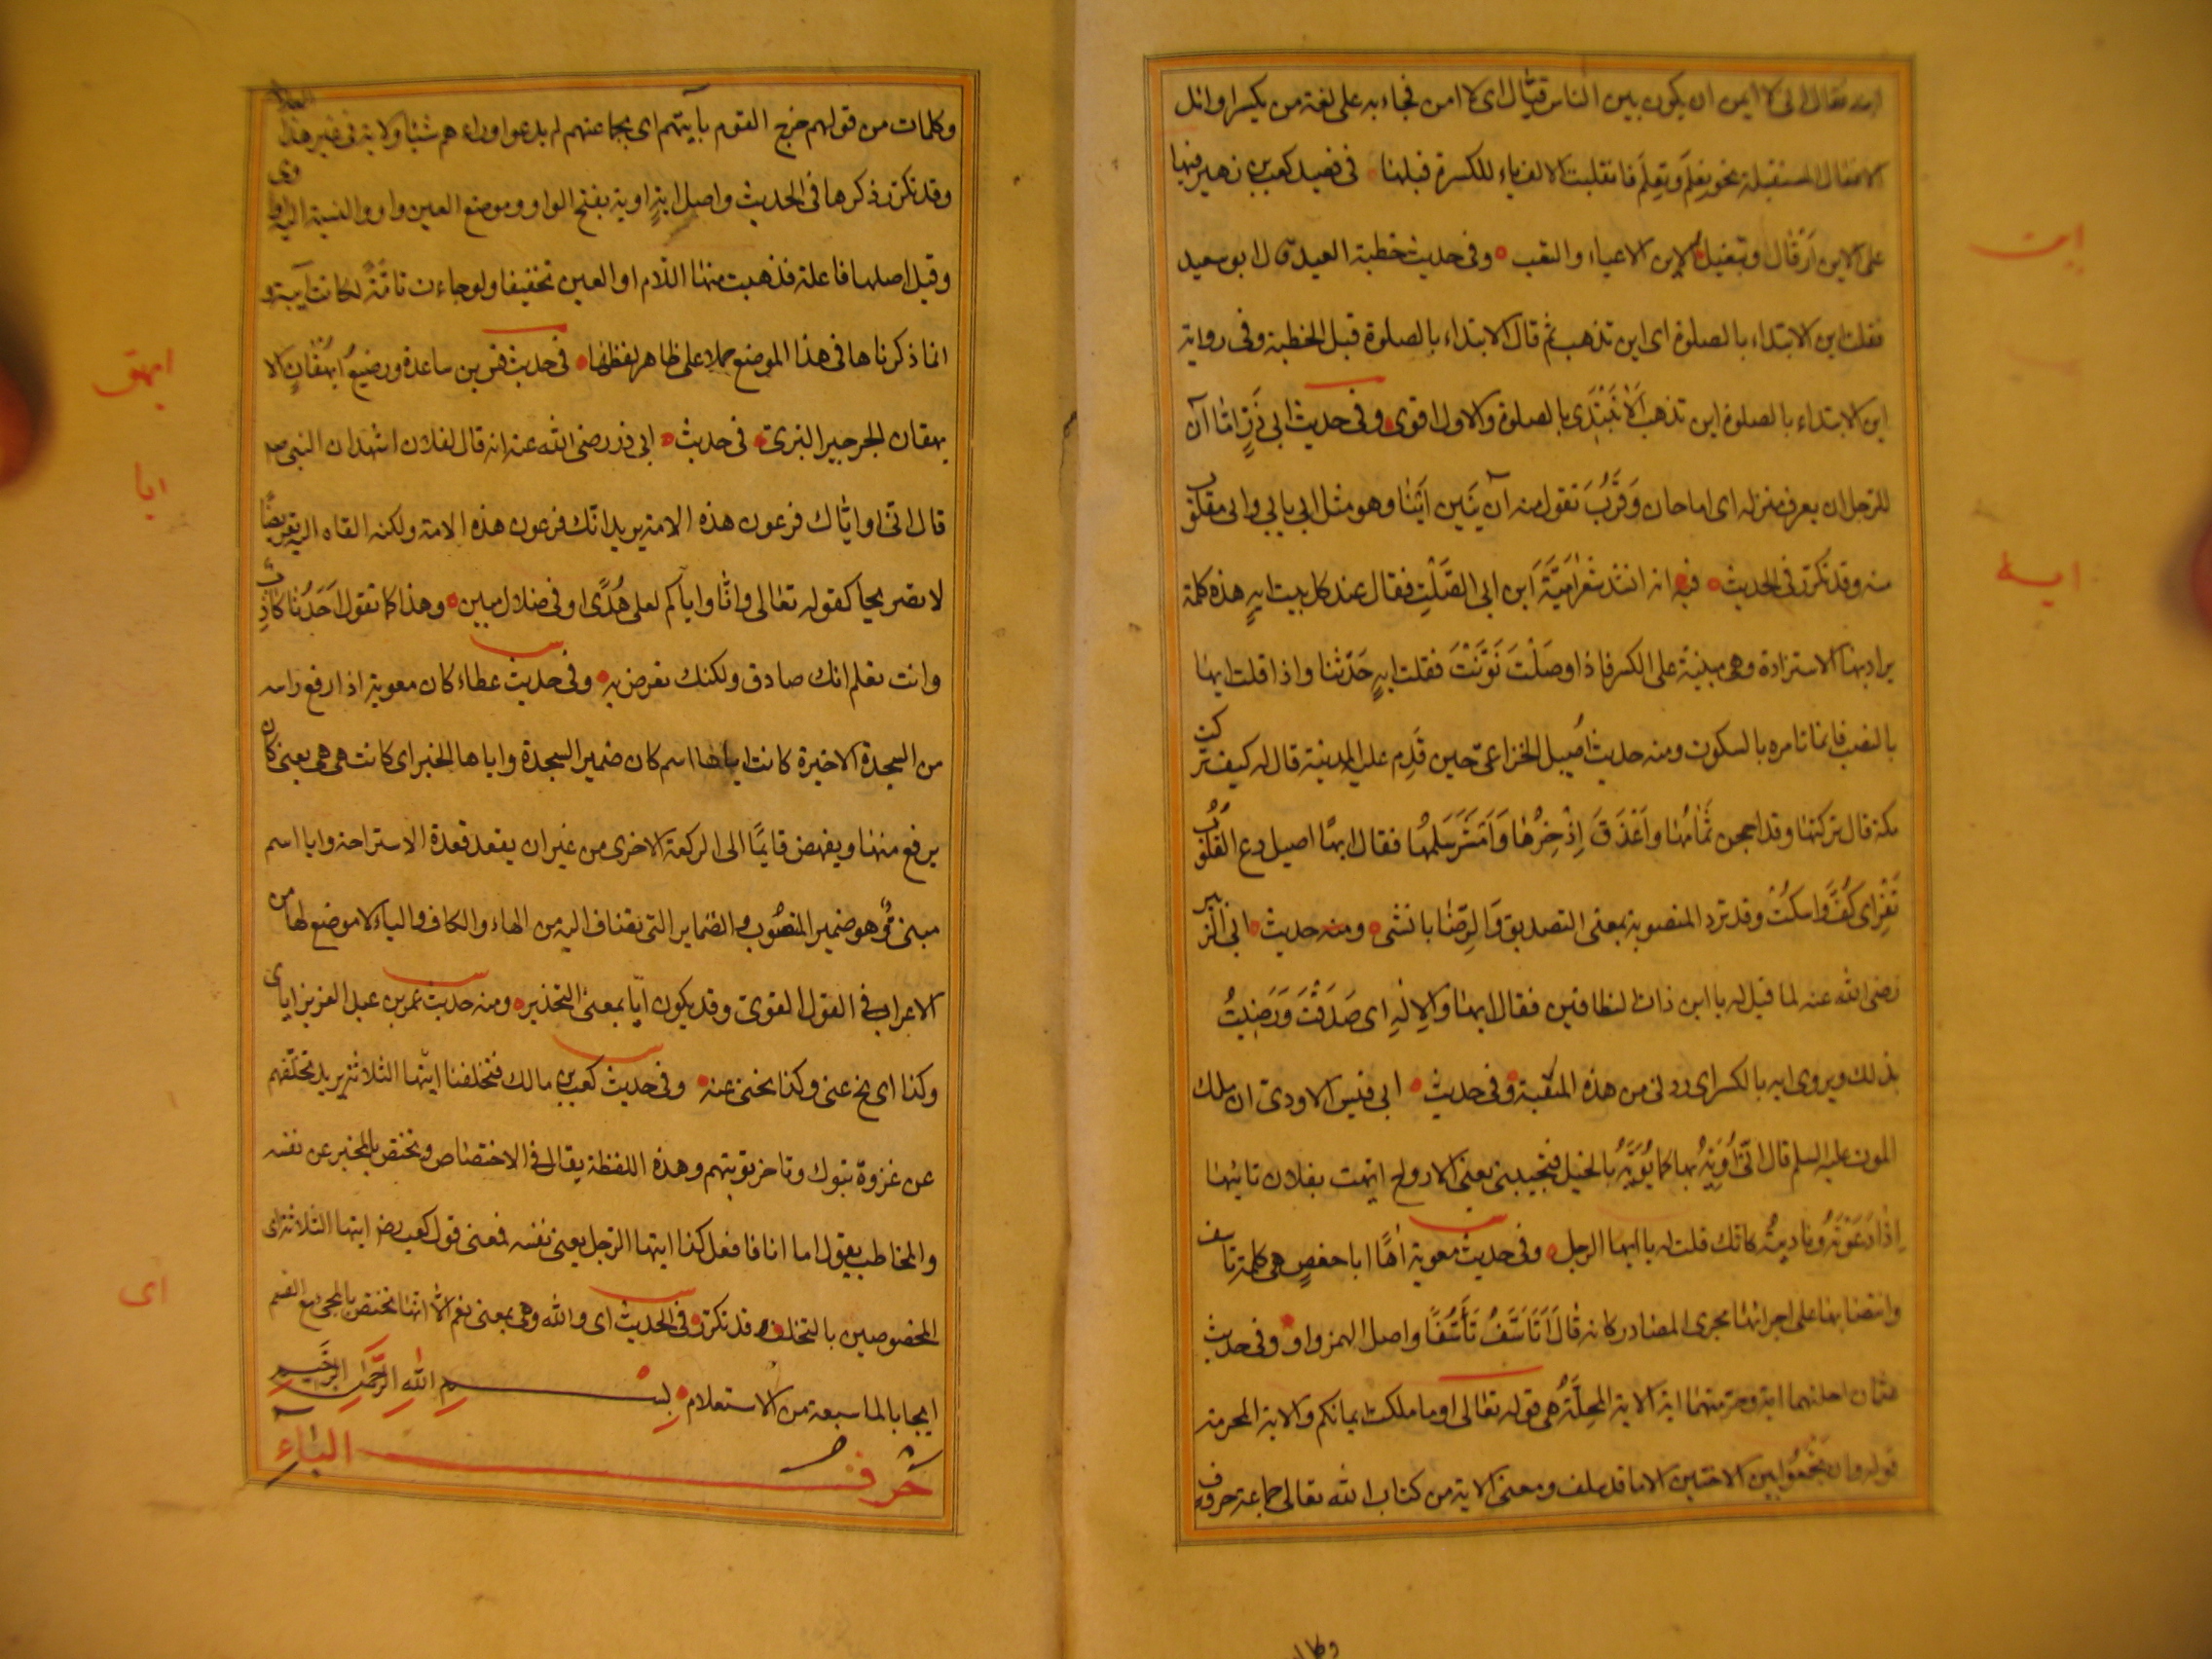 ابنه فقال انى لا ايمن ان يكون بين الناس قتال اى لا امن فجاء به على لغة من يكسر اوائل
الافعال المستقبلة نحو يعلم وتعلم فانقلبت الالف ياء للكسرة قبلها في قصيد كعب بن زهير فيها
على الاين ارقال وتبغيل الاين الاعياء والتعب وفى حديث خطبة العيد قال ابو سعيد
فقلت اين الابتداء بالصلوة اى اين تذهب ثم قال الابتداء بالصلوة قبل الخطبة وفى رواية
اين الابتداء بالصلوة اين تذهب اَلَا نَبْتَدِى بالصلوة والاول اقوى وفى حديث ابى ذَرٍّ امَا آن
للرجل ان يعرف منزله اى اما حان وَقَرُبَ تقول منه آن يَئين اَيْنًا وهو مثل انى يانى وانى مقلوب
منه وقد تكرر فى الحديث فيه انه انشد شعر اُمَيَّةَ ابن ابى الصَّلْتِ فقال عند كل بيت ايهِ هذه كلمة
يراد بها الاستزادة وهى مبنية على الكسر فاذا وصَلْتَ نَوَّنْتَ فقلت ايهٍ حَدّثنا واذا قلت ايها
بالنصب فانما تامره بالسكوت ومنه حديث اُصيل الخزاعى حين قَدِم عليه المدينة قال له كيف تركت
مكة قال تركتها وقد احجن ثُمَامُها واَعْذَقَ اِذْخِرُها وَاَمْشَرَ سَلَمُها فقال ايهًا اصيل دع القلوب
تَقِرُّ اى كُفَّ واسكت وقد ترد المنصوبة بمعنى التصديق وَالرِّضَا بالشئ ومنه حديث ابن الزبير
رضى الله عنه لما قيل له يا ابن ذات النطاقين فقال ايها وَالاِلٰهِ اى صَدَقْتَ وَرَضِيتُ
بذلك ويروى ايه بالكسر اى زدنى من هذه المنقبة وفى حديث ابى قيس الاودى ان ملك
الموت عليه السلم قال انّى اُؤَيِّهُ بها كما يُؤَيَّهُ بالخيل فتجيبنى يعنى الارواح ايهت بفلان تاييها
اِذَا دَعَوْتَهُ وناديتُه كانك قلت له يا ايها الرجل وفى حديث معوية اهًا ابا حفصٍ هى كلمة تاسف
وانتصابها على اجرائها مجرى المصادر كانه قال اَتَاَسَّفُ تَأَسُّفًا واصل الهمزة واو وفى حديث
عثمان احلتهما اية وحرمتهما اية الاية المحِلَّةُ هى قوله تعالى او ما ملكت ايمانكم والاية المحرمة
قوله وان تَجْمَعُوا بين الاختين الا ما قد سلف ومعنى الاية من كتاب الله تعالى جماعة حروف
ايت
ايه
وكلمات من قولهم خرج القوم بآيتهم اى بجماعتهم لم يدعوا وراءهم شيئا والاية فى غير هذا العلامة
وقد تكرر ذكرها فى الحديث واصل ايةٍ اوية بفتح الواو وموضع العين واو والنسبة اليها اووى
وقيل اصلها فاعلة فذهبت منها اللام او العين تخفيفا ولو جاءت تامّةً لكانت آيية و
انما ذكرناها فى هذا الموضع حملا على ظاهر لفظها فى حديث قس بن ساعدة ورضيعُ اَيْهُقَانٍ الا
يهقان الجرجير البرى فى حديث ابى ذر رضى الله عنه انه قال لفلان اشهد ان النبى صم
قال انى او اياك فرعون هذه الامة يريد انك فرعون هذه الامة ولكنه القاه اليه تعريضًا
لا تصريحا كقوله تعالى وانّا او اياكم لعلى هُدًى او فى ضلال مبين وهذا كما تقول اَحَدُنا كاذب
وانت تعلم انك صادق ولكنك تعرض به وفى حديث عطاء كان معوية اذا رفع راسه
من السجدة الاخيرة كانت اياها اسم كان ضمير السجدة واياها الخبر اى كانت هى هى يعنى كان
يرفع منها وينهض قايمًا الى الركعة الاخرى من غير ان يقعد قعدة الاستراحة وايا اسم
مبنى وهو ضمير المنصُوب والضماير التى يضاف اليه من الهاء والكاف والياء لا موضع لها من
الاعراب فى القول القوى وقد يكون ايّا بمعنى التحذير ومنه حديث عمر بن عبد العزيز اياى
وكذا اى نح عنى وكذا نحنى عنه وفى حديث كعب بن مالك فتخلفنا ايتها الثلاثة يريد تخلّفهم
عن غزوة تبوك وتاخر توبتهم وهذه اللفظة يقال فى الاختصاص وتختص بالمخبر عن نفسه
والمخاطب يقول اما انا فافعل كذا ايتها الرجل يعنى نفسه فمعنى قول كعب رضه ايتها الثلاثة اى
المخصوصين بالتخلف وقد تكرر فى الحديث اى والله وهى بمعنى نعم الا انها تختص بالمجئ مع القسم
ايجابا لما سبقه من الاستعلام بسم الله الرَّحْمٰن الرَّحيم
حَرف الباء
ايهق
ايا
اى